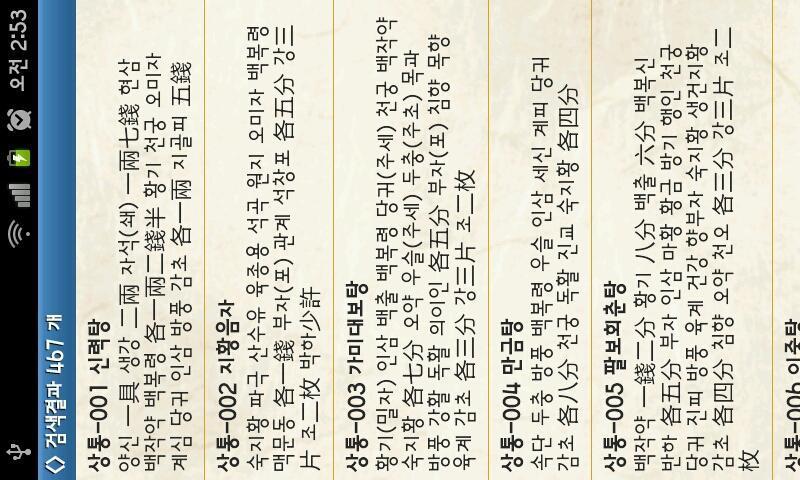 오전 2:53
검색결과 467 개
상통-001 신력탕
양신 一具 생강 二兩 자석(쇄) 一兩七錢 현삼
백작약 백복령 各一兩二錢半 황기 천궁 오미자
계심 당귀 인삼 방풍 감초 各一兩 지골피 五錢
상통-002 지황음자
숙지황 파극 산수유 육종용 석곡 원지 오미자 백복령
맥문동 各一錢 부자(포) 관계 석창포 各五分 강三
片 조二枚 박하少許
상통-003 가미대보탕
황기(밀자) 인삼 백출 백복령 당귀(주세) 천궁 백작약
숙지황 各七分 오약 우슬(주세) 두충(주초) 목과
방풍 강활 독활 의이인 各五分 부자(포) 침향 목향
육계 감초 各三分 강三片 조二枚
상통-004 만금탕
속단 두충 방풍 백복령 우슬 인삼 세신 계피 당귀
감초 各八分 천궁 독활 진교 숙지황 各四分
상통-005 팔보회춘탕
백작약 一錢二分 황기 八分 백출 六分 백복신
반하 各五分 부자 인삼 마황 황금 방기 행인 천궁
당귀 진피 방풍 육계 건강 향부자 숙지황 생건지황
감초 各四分 침향 오약 천오 各三分 강三片 조二
枚
상통-006 이중탕